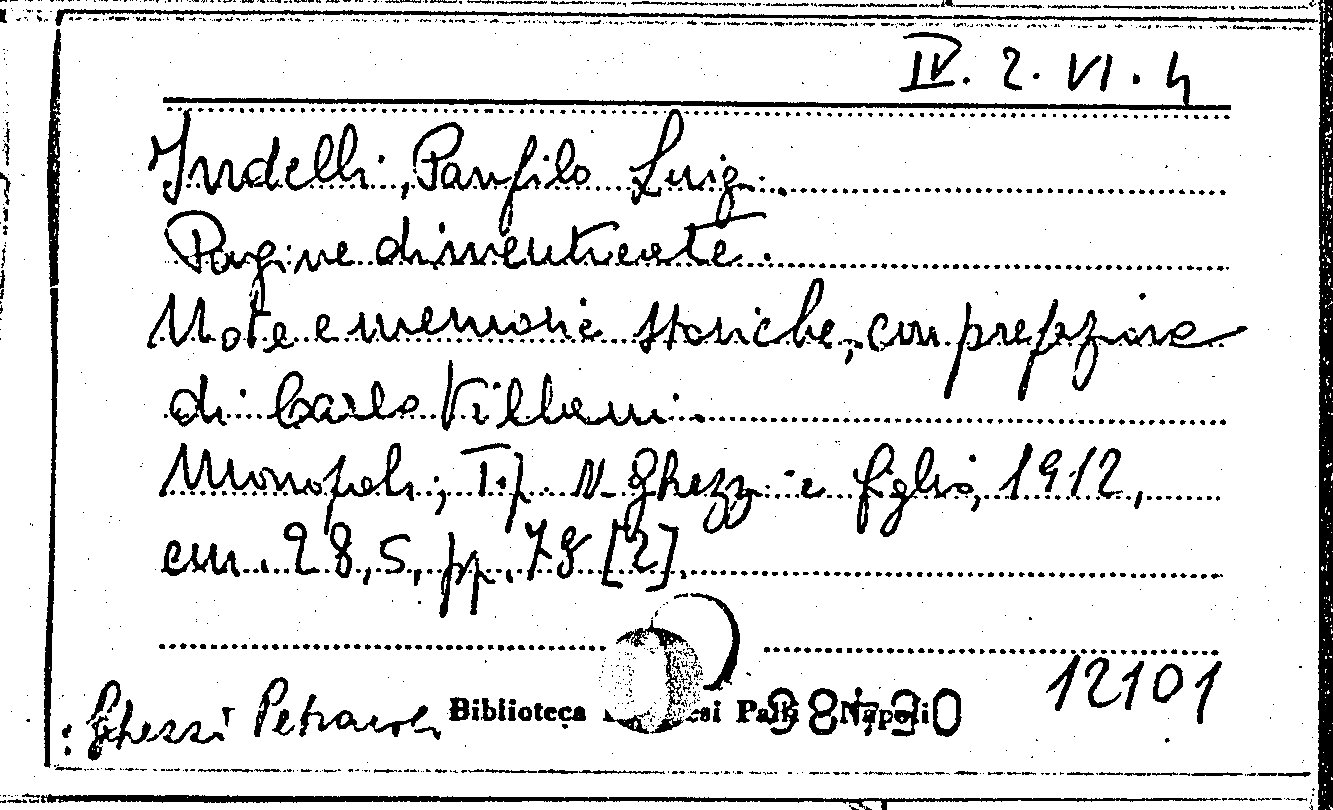 IV. 2. VI. 4
Indelli, Panfilo Luigi.
Pagine dimenticate.
Note e memorie storiche, con prefazione
di Carlo Villani.
Monopoli, Tip. N. Ghezzi e figlio, 1912,
cm. 28,5, pp. 78 [2].
12101
: Ghezzi Petraroli Biblioteca Napoli